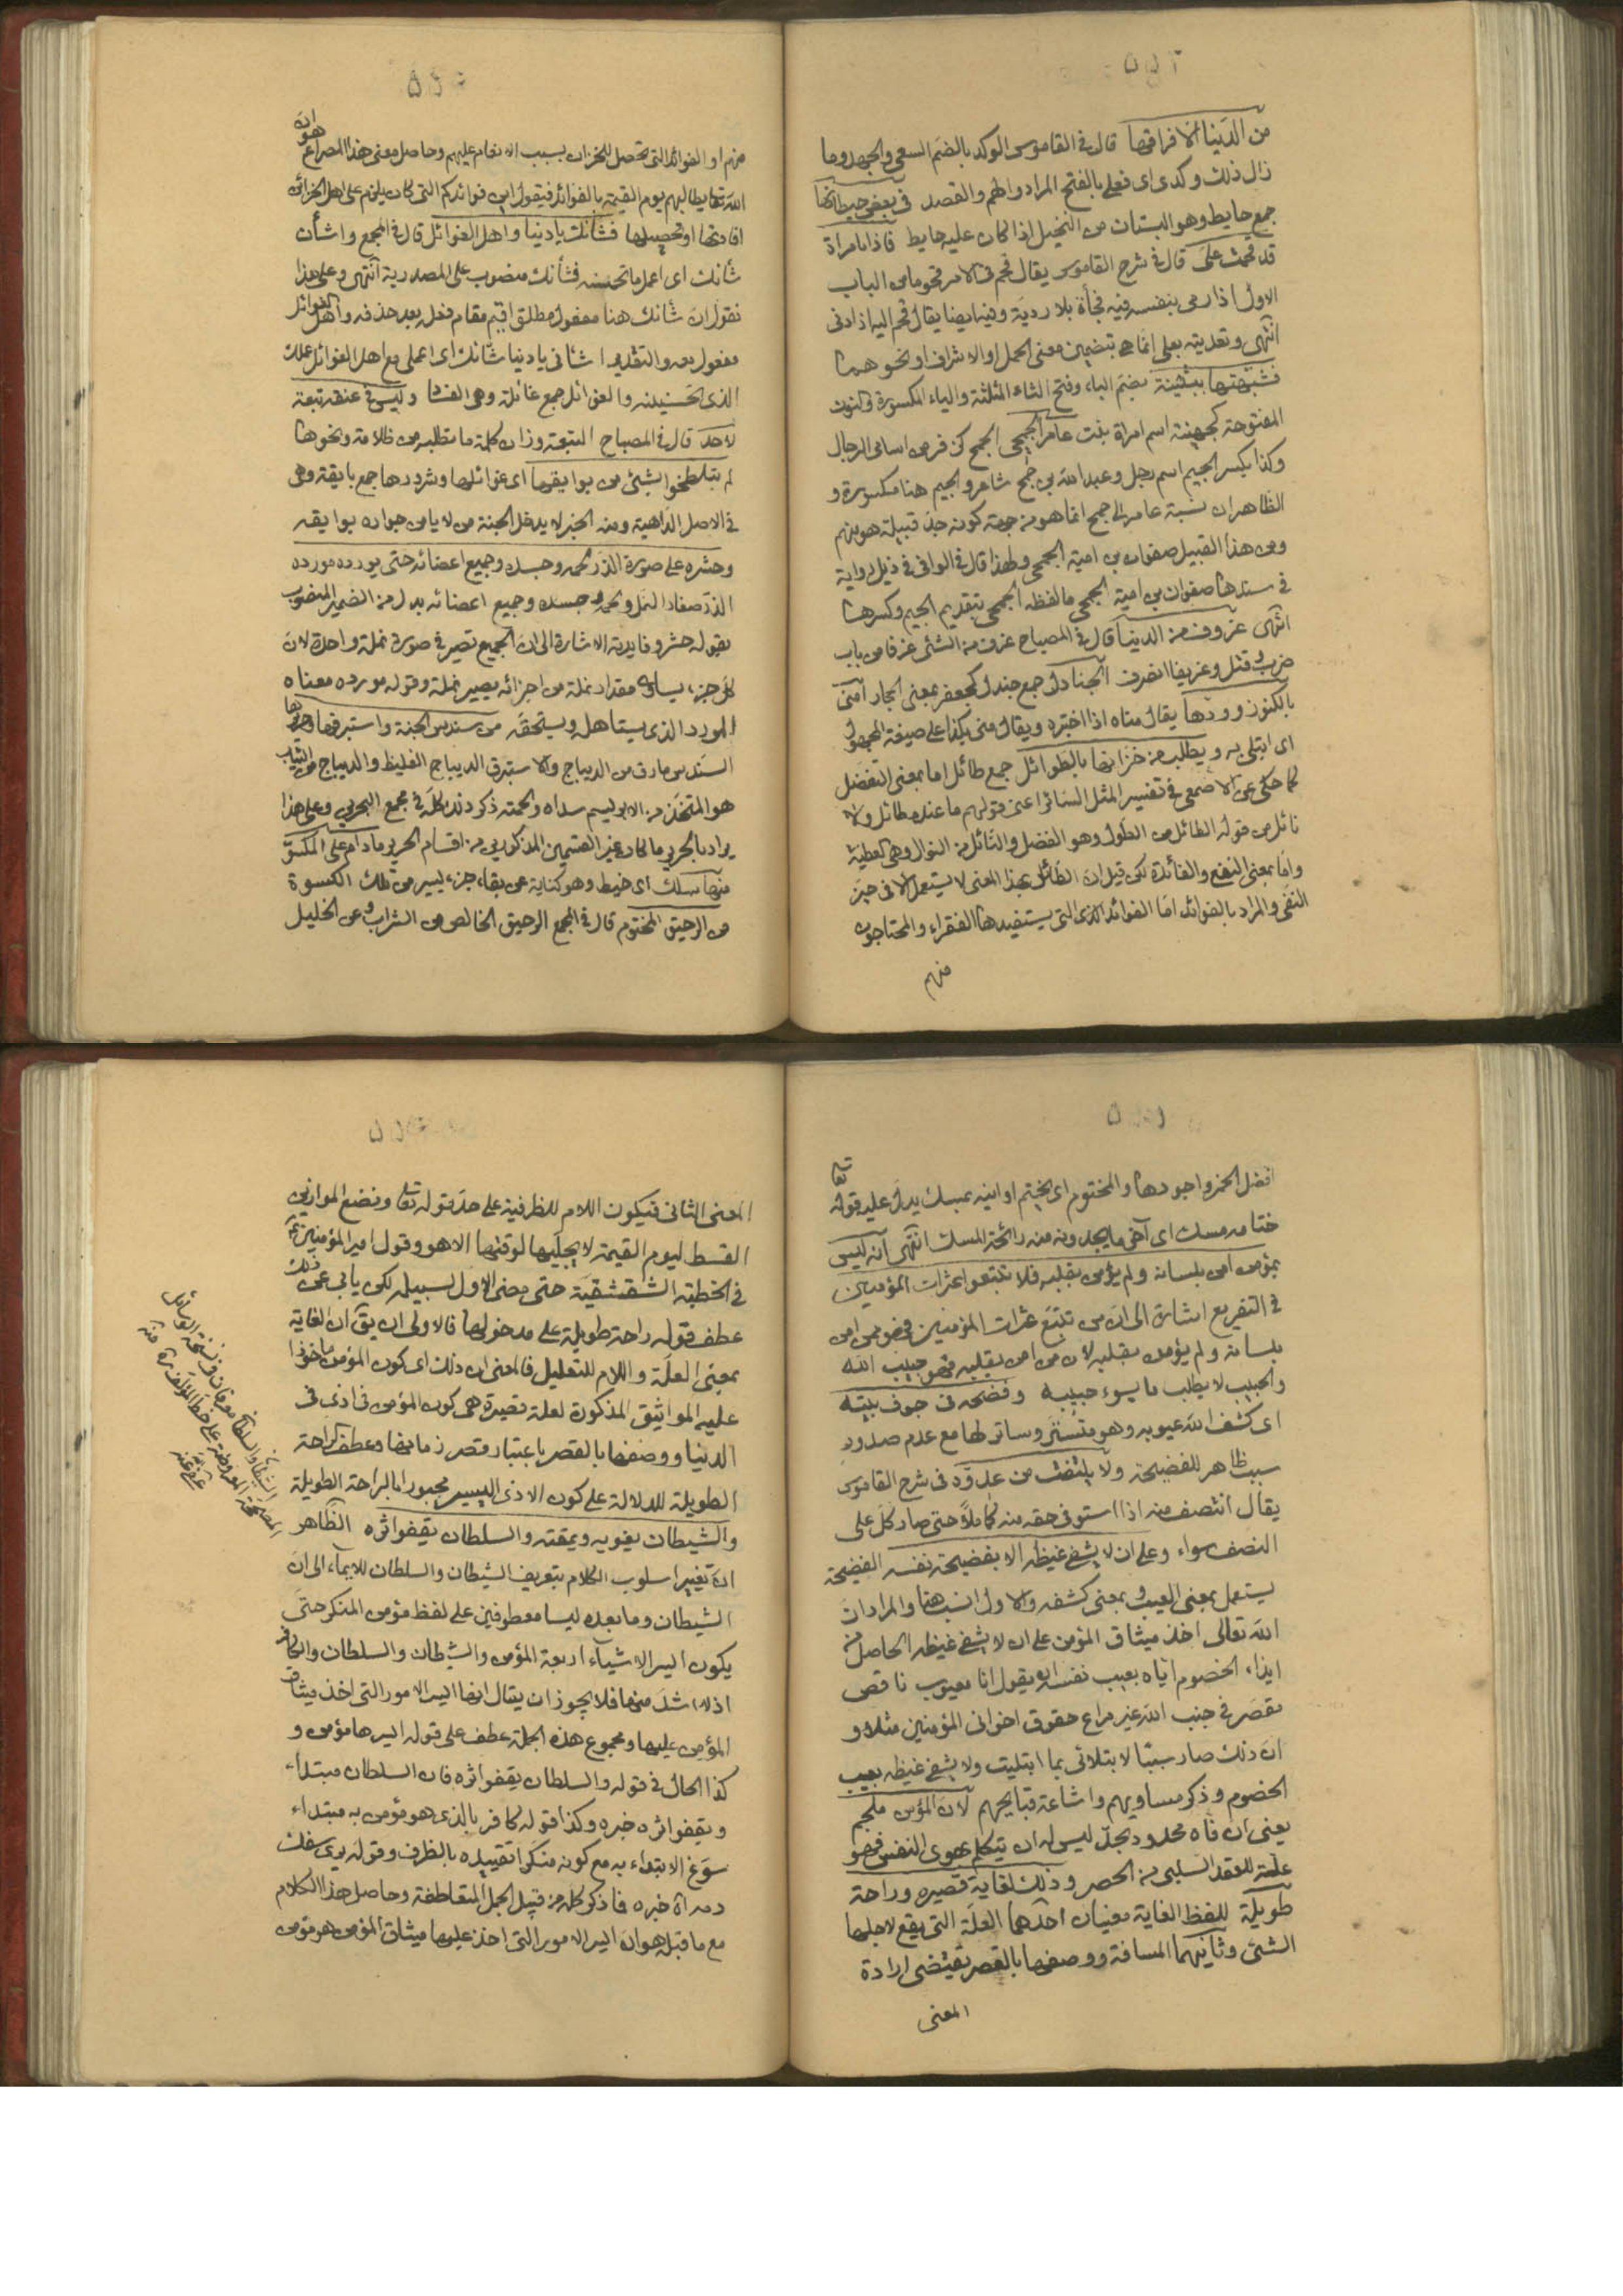 من الدنيا الا فراقها قال في القاموس الوكد بالضم السعى والجهد وما
زال ذلك وكدى اى فعلى بالفتح المراد والهم والقصد في بعض حيطانها
جمع حايط وهو البستان من النخيل اذا كان عليه حايط فاذا بامراة
قد قحمت على قال في شرح القاموس يقال قحم في الامر قحوما من الباب
الاول اذا رمى بنفسه فيه فجأة بلا روية وفيه ايضا يقال قحم اليه اذا دنى
انتهى وتعديته بعلى انما هي بتضمين معنى الحمل او الاشراف او نحوهما
فشبهتها ببثينة بضم الباء وفتح الثاء المثلثة والياء المكسورة والنون
المفتوحة كجهينة اسم امراة بنت عامر الجمحى الجمح كزفر من اسامى الرجال
وكذا بكسر الجيم اسم رجل وعبد الله بن جمح شاعر والجيم هنا مكسورة و
الظاهر ان نسبة عامر الى جمح انما هو من جهة كونه جد قبيلة هو منهم
ومن هذا القبيل صفوان بن امية الجمحى ولهذا قال في الوافى في ذيل رواية
في سندها صفوان بن امية الجمحى ما لفظه الجمحى بتقديم الجيم وكسرها
انتهى عزوف من الدنيا قال في المصباح عزف من الشئ عزفا من باب
ضرب وقتل وعزيفا انصرف الجنادل جمع جندل كجعفر بمعنى الحجار امنى
بالكنوز وودها يقال مناه اذا اختبره ويقال منى بكذا على صيغة المجهول
اى ابتلى به ويطلب من خزانها بالطوائل جمع طائل اما بمعنى التفضل
كما حكى عن الاصمعى في تفسير المثل السائر اعنى قولهم ما عنده طائل ولا
نائل من قوله الطائل من الطول وهو الفضل والنائل من النوال وهى العطية
واما بمعنى النفع والفائدة لكن قيل ان الطائل بهذا المعنى لا يستعمل الا في حيز
النفى والمراد بالفوائد اما الفوائد الذى التى يستفيدها الفقراء والمحتاجون
منهم
منهم او الفوائد التى تحصل للخزان بسبب الانعام عليهم وحاصل معنى هذا المصراع هو ان
الله تعا يطالبهم يوم القيمة بالفوائد فيقول اين فوائدكم التى كان يلزم على اهل الخزائن
افادتها او تحصيلها فشأنك يا دنيا واهل الغوائل قال في المجمع واشأن
شأنك اى اعمل ما تحسنه فشأنك منصوب على المصدرية انتهى وعلى هذا
نقول ان شانك هنا مفعول مطلق اقيم مقام فعله بعد حذفه واهل الغوائل
مفعول معه والتقدير اشانى يا دنيا شانك اى اعملى مع اهل الغوائل عملك
الذى تحسنينه والغوائل جمع غائلة وهى الفساد وليس في عنقه تبعة
لاحد قال في المصباح التبعة وزان كلمة ما تطلبه من ظلامة ونحوها
لم يتلطخوا بشئ من بوايقها اى غوائلها وشرورها جمع بايقة وهى
في الاصل الداهية ومنه الخبر لا يدخل الجنة من لا يامن جواره بوايقه
وحشره على صورة الذر لحمه وجسده وجميع اعضائه حتى يورده مورده
الذر صغار النمل ولحمه وجسده وجميع اعضائه بدل من الضمير المنصوب
بقوله حشره وفايدته الاشارة الى ان الجميع تصير في صورة نملة واحدة لان
كل جزء يساوى مقدار نملة من اجزائه يصير نملة وقوله مورده معناه
المورد الذى يستاهل ويستحقه من سندس الجنة واستبرقها وحريرها
السندس مارق من الديباج والاستبرق الديباج الغليظ والديباج من الثياب
هو المتخذ من الابريسم سداه ولحمته ذكر ذلك كله في مجمع البحرين وعلى هذا
يراد بالحرير ما كان غير القسمين المذكورين من اقسام الحرير مادام على المكسو
منها سلك اى خيط وهو كناية عن بقاء جزء يسير من تلك الكسوة
من الرحيق المختوم قال في المجمع الرحيق الخالص من الشراب وعن الخليل
افضل الخمر واجودها والمختوم اى يختم اوانيه بمسك يدل عليه قوله تعا
ختامه مسك اى آخر ما يجدونه منه رائحة المسك انتهى انه ليس
بمؤمن امن بلسانه ولم يؤمن بقلبه فلا تتبعوا عثرات المؤمنين
في التفريع اشارة الى ان من تتبع عثرات المؤمنين فهو ممن امن
بلسانه ولم يؤمن بقلبه لان من امن بقلبه فهو حبيب الله
والحبيب لا يطلب ما يسوء حبيبه وفضحه في جوف بيته
اى كشف الله عيوبه وهو متستر وساتر لها مع عدم صدور
سبب ظاهر للفضيحة ولا ينتصف من عدوه في شرح القاموس
يقال انتصف منه اذا استوفى حقه منه كاملا حتى صار كل على
النصف سواء وعلى ان لا يشفى غيظه الا بفضيحة نفسه الفضيحة
يستعمل بمعنى العيب وبمعنى كشفه والاول انسب هنا والمراد ان
الله تعالى اخذ ميثاق المؤمن على ان لا يشفى غيظه الحاصل من
ايذاء الخصوم اياه بعيب نفسه اى يقول انا معيوب ناقص
مقصر في جنب الله غير مراع حقوق اخوانى المؤمنين مثلا و
ان ذلك صار سببا لابتلائى بما ابتليت ولا يشفى غيظه بعيب
الخصوم وذكر مساويهم واشاعة قبايحهم لان المؤمن ملجم
يعنى ان فاه محدود بحد ليس له ان يتكلم بهوى النفس فهو
علة للعقد السلبى من الحصر وذلك لغاية قصيرة وراحة
طويلة للفظ الغاية معنيان احدهما العلة التى يقع لاجلها
الشئ وثانيهما المسافة ووصفها بالقصر يقتضى ارادة
المعنى
المعنى الثانى فيكون اللام للظرفية على حد قوله تعا ونضع الموازين
القسط ليوم القيمة لا يجليها لوقتها الا هو وقول امير المؤمنين ع
في الخطبة الشقشقية حتى مضى الاول لسبيله لكن يابى عن ذلك
عطف قوله راحة طويلة على مدخولها فالاولى ان يق ان الغاية
بمعنى العلة واللام للتعليل فالمعنى ان ذلك اى كون المؤمن ماخوذا
عليه المواثيق المذكورة لعلة قصيرة هى كون المؤمن في اذى في
الدنيا ووصفها بالقصر باعتبار قصر زمانها وعطف الراحة
الطويلة للدلالة على كون الاذى اليسير مجبورا بالراحة الطويلة
والشيطان يغويه ويمقته والسلطان يقفو اثره الظاهر
ان تغيير اسلوب الكلام بتعريف الشيطان والسلطان للايماء الى ان
الشيطان وما بعده ليسا معطوفين على لفظ مؤمن المنكر حتى
يكون ايسر الاشياء اربعة المؤمن والشيطان والسلطان والكافر
اذ لا اشد منها فلا يجوز ان يقال انها ايسر الامور التى اخذ ميثاق
المؤمن عليها ومجموع هذه الجملة عطف على قوله ايسرها مؤمن و
كذا الحال في قوله والسلطان يقفو اثره فان السلطان مبتداء
ويقفو اثره خبره وكذا قوله كافر بالذى هو مؤمن به مبتداء
سوغ الابتداء به مع كونه منكرا تقييده بالظرف وقوله يرى سفك
دمه اه خبره فاذكر كله من قبيل الجمل المتعاطفة وحاصل هذا الكلام
مع ما قبله هو ان ايسر الامور التى اخذ عليها ميثاق المؤمن هو مؤمن
الشيطان والسلطان معرفان في نسخة الوسائل
المصححة المعروضة على خط المؤلف ره منه
عفى عنه